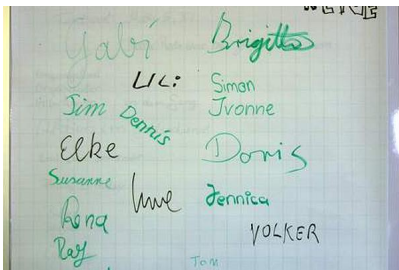 Gabi Brigitte
Lili Simon
Jim Dennis Ivonne
Elke Doris
Susanne Uwe Jennica
Rena
Ray VOLKER
Tom